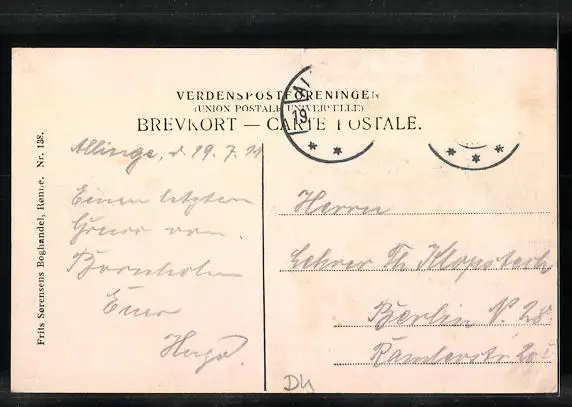 VERDENSPOSTFORENINGEN
(UNION POSTALE UNIVERSELLE)
BREVKORT — CARTE POSTALE.
19
Allinge, d. 19. 7. 11
Einen letzten
Gruss von
Bornholm
Euer
Hugo.
Herrn
Lehrer Th. Klopstech
Berlin N. 28.
Ramlerstr. 20
Frits Sørensens Boghandel, Rønne. Nr. 138.
DK